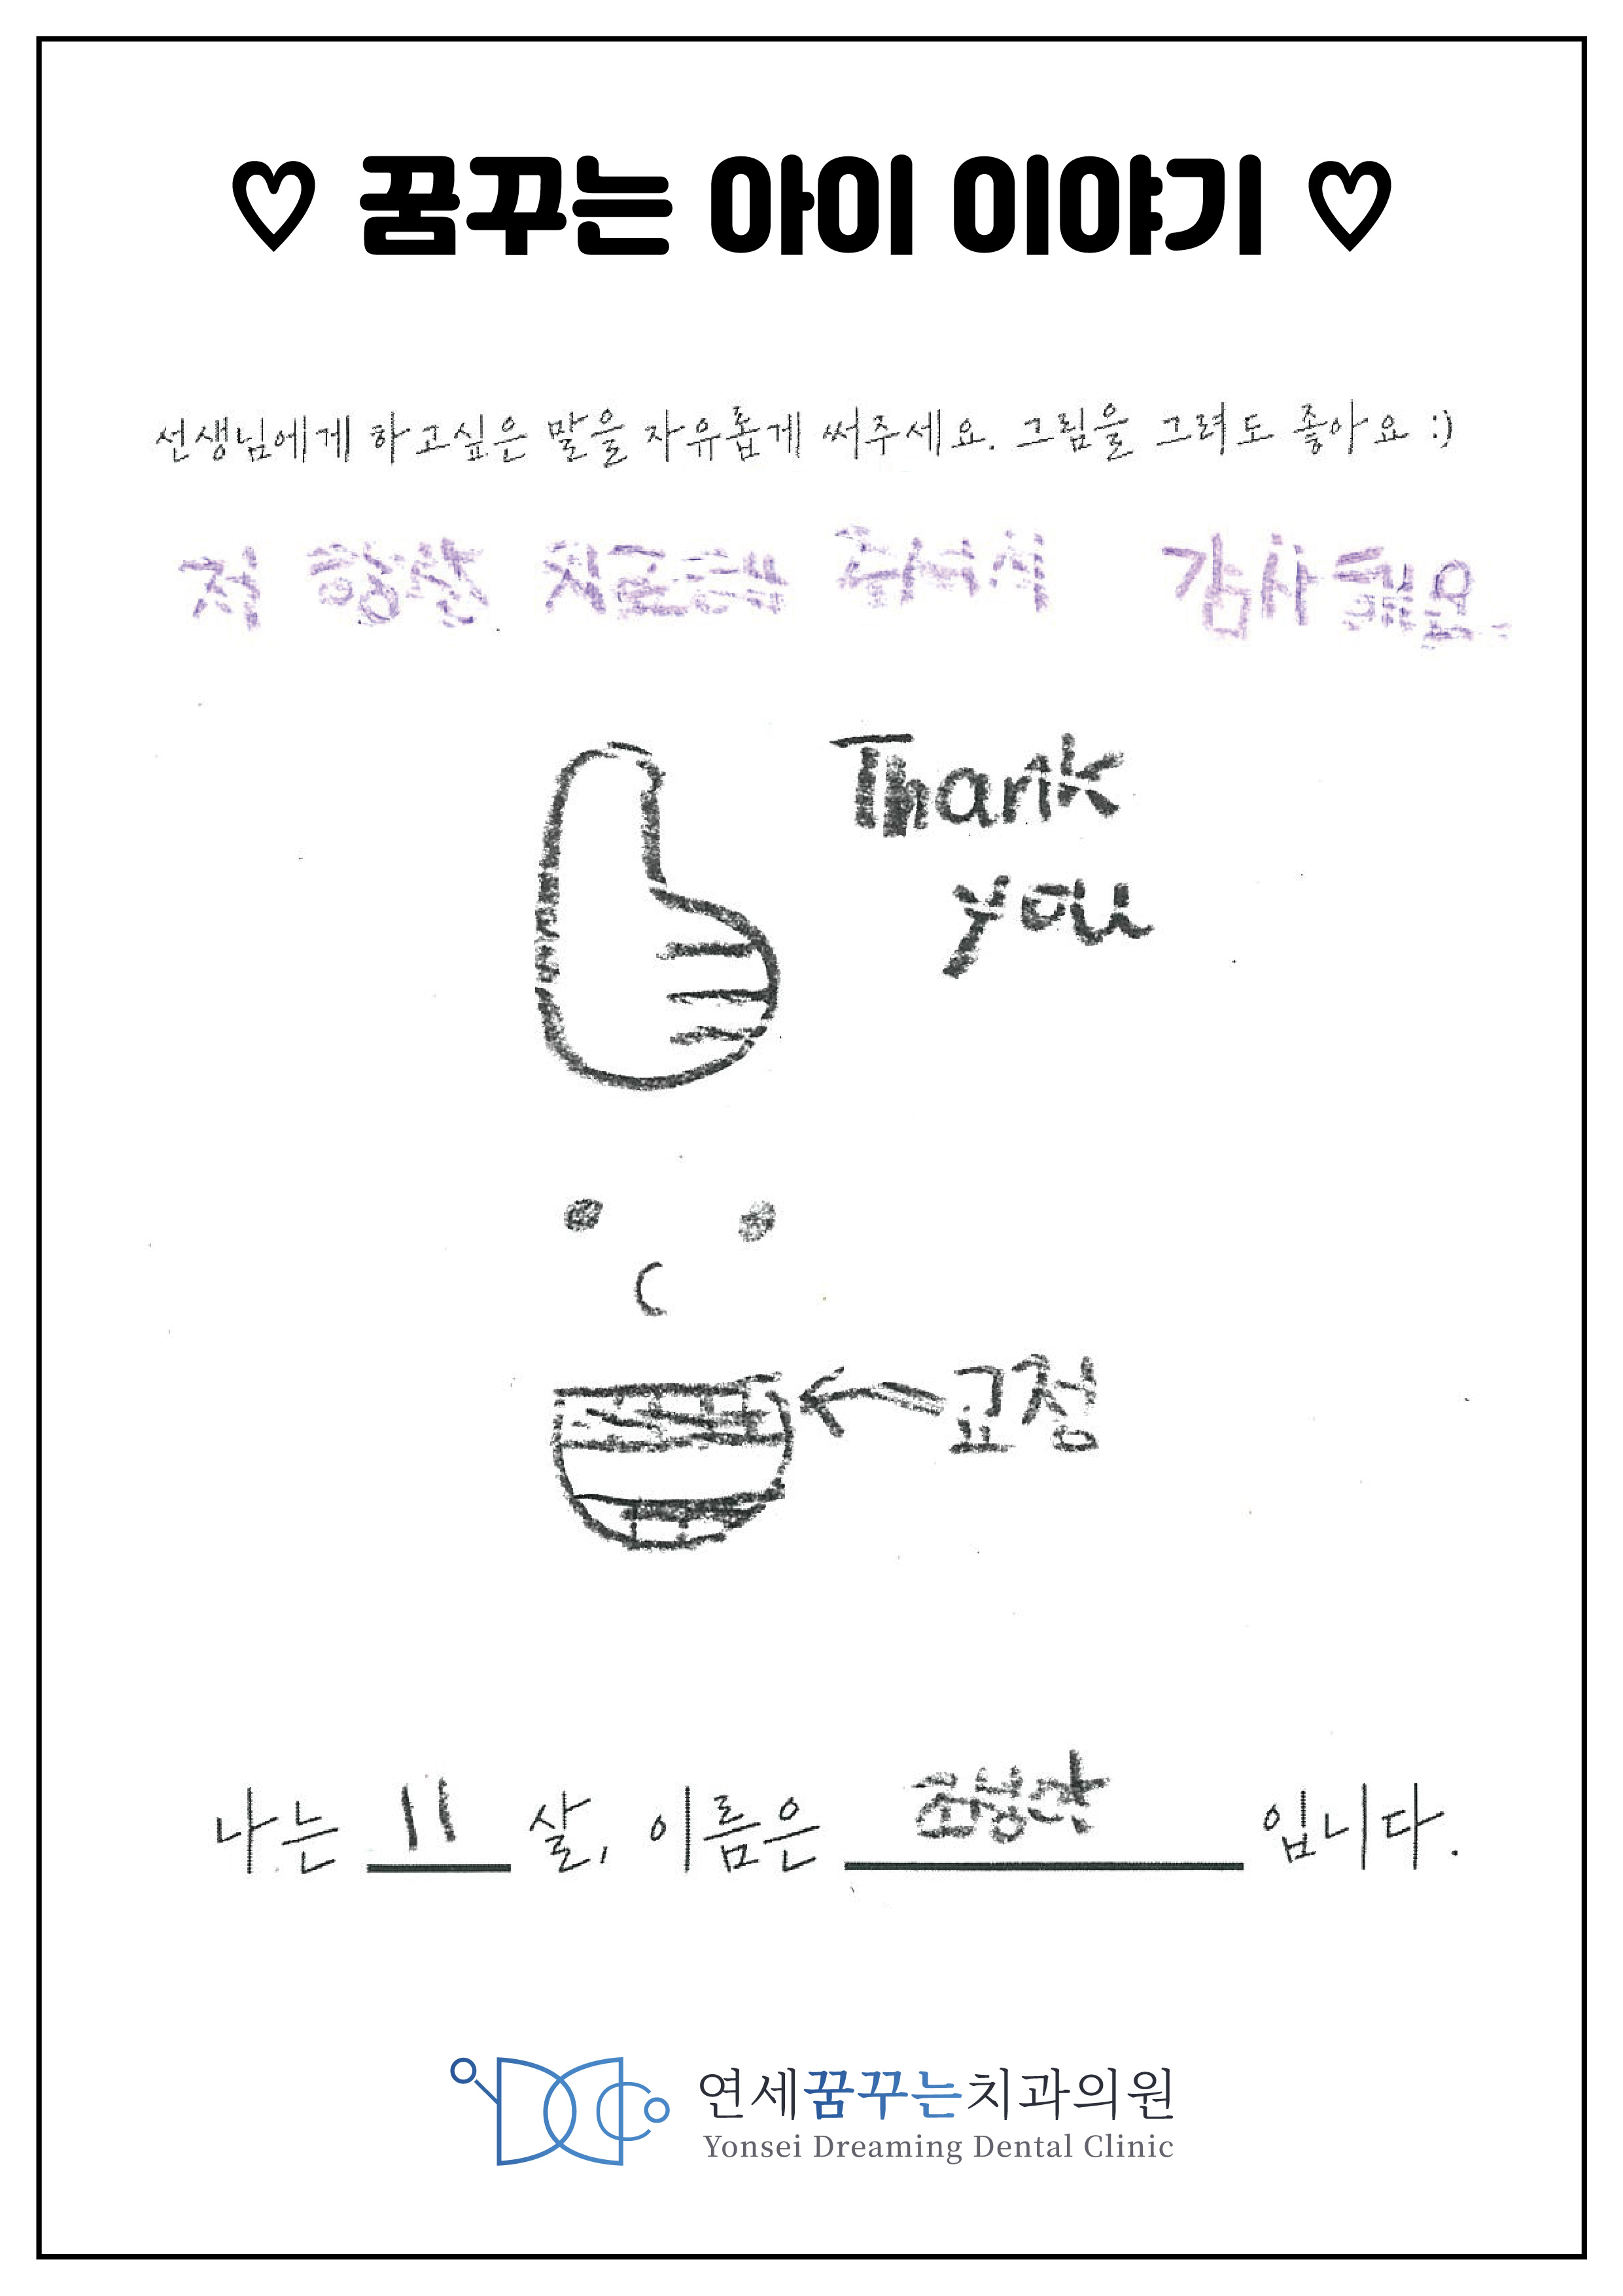 ♡ 꿈꾸는 아이 이야기 ♡
선생님에게 하고싶은 말을 자유롭게 써주세요. 그림을 그려도 좋아요 :)
저 항상 치료해 주셔서 감사해요.
Thank
you
교정
나는 11 살, 이름은 입니다.
연세꿈꾸는치과의원
Yonsei Dreaming Dental Clinic